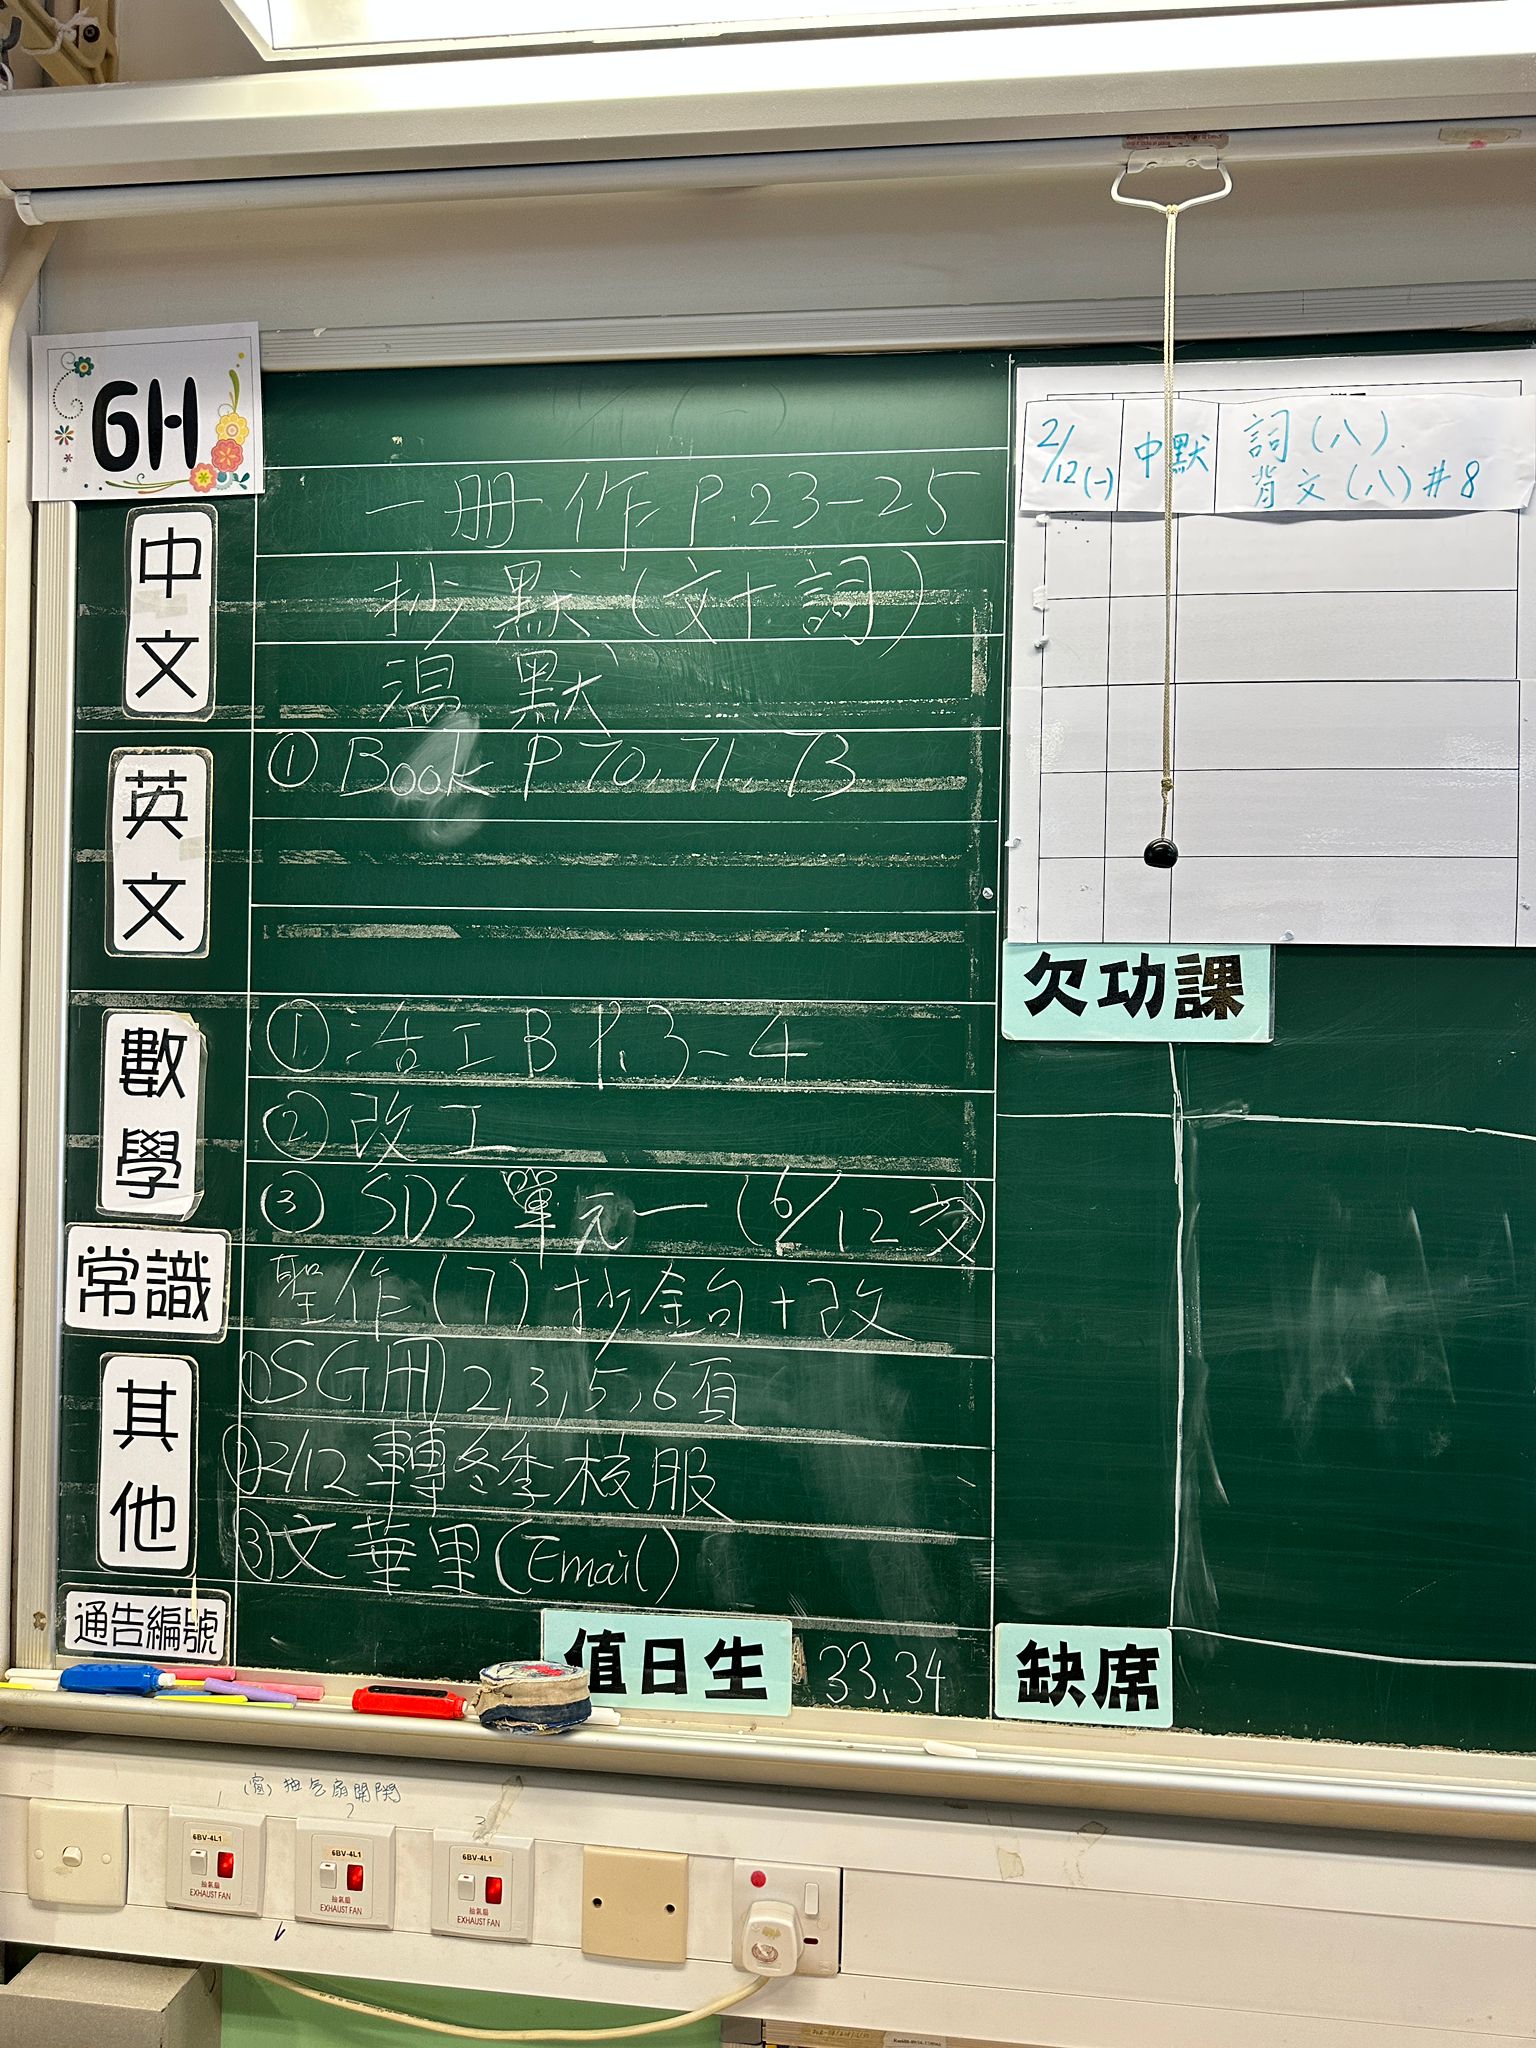 6H
中文
一冊 作 P.23-25
抄 默 (文+詞)
溫 默
英文
① Book P 70, 71, 73
數學
① 活工B P.3-4
② 改工
③ SDS 單元一 (6/12 交)
常識
聖作(7) 抄金句+改
其他
①SG用 2,3,5,6頁
②2/12 轉冬季校服
③文華里(Email)
通告編號
值日生 33,34
2/12(一) 中默 詞(八).
背文(八)#8
欠功課
缺席
(窗) 抽气扇開関
1
2
3
6BV-4L1
抽氣扇
EXHAUST FAN
6BV-4L1
抽氣扇
EXHAUST FAN
6BV-4L1
抽氣扇
EXHAUST FAN